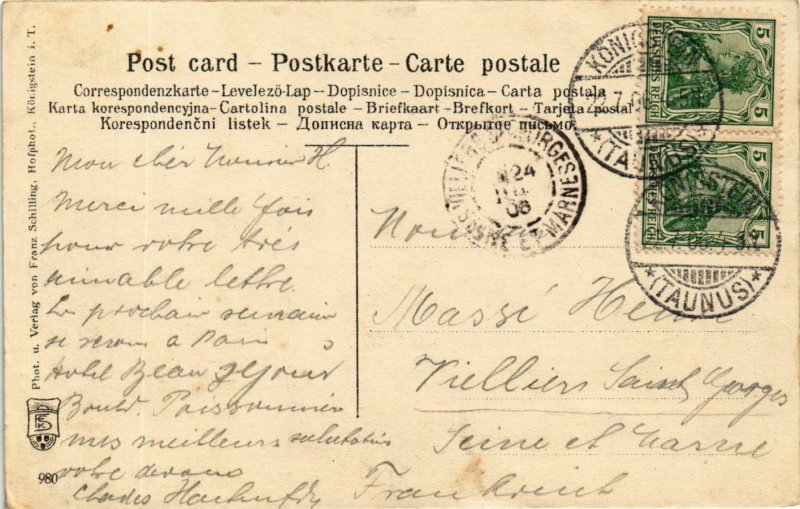 Post card – Postkarte – Carte postale
Correspondenzkarte – Levelező-Lap – Dopisnice – Dopisnica – Carta postala
Karta korespondencyjna – Cartolina postale – Briefkaart – Brefkort – Tarjeta postal
Korespondenční listek – Дописна карта – Открытое письмо
Phot. u. Verlag von Franz Schilling, Hofphot., Königstein i. T.
980
Mon cher Monsieur H.
Merci mille fois
pour votre très
aimable lettre.
La prochain semaine
je serais a Paris
Hotel Beau Sejour
Boulv. Poissonnière
mes meilleurs salutations
votre
Charles
Massé Henri
Villiers Saint Georges
Seine et Marne
Frankreich
5 5
DEUTSCHES REICH
5 5
DEUTSCHES REICH
KÖNIGSTEIN
*(TAUNUS)*
KÖNIGSTEIN
*(TAUNUS)*
VILLIERS ST GEORGES
24
06
SEINE ET MARNE